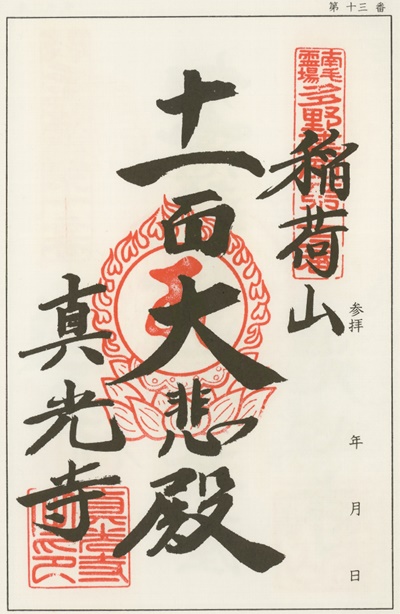 第十三番
稲荷山
参拝 年 月 日
十一面大悲殿
真光寺
南毛霊場
真光寺